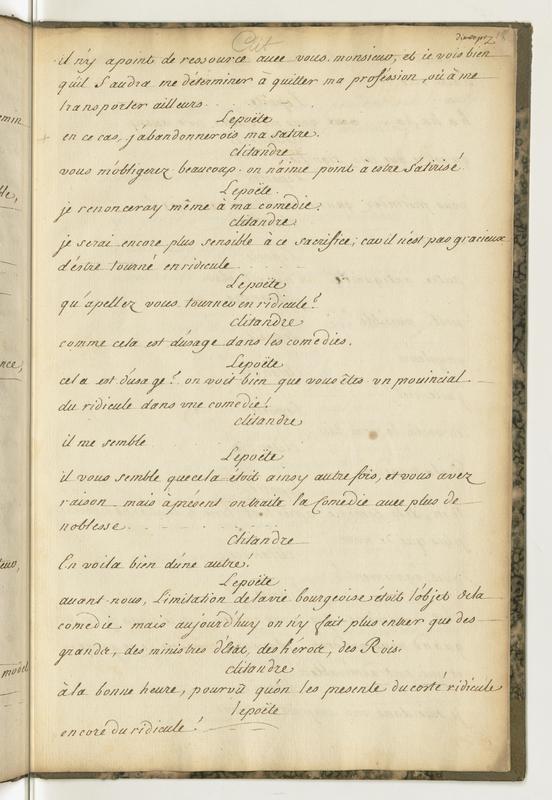 Clit
il n'y a point de ressource avec vous. monsieur, et ie vois bien
qu'il faudra me déterminer à quitter ma profession, où à me
transporter ailleurs.
Le poëte
en ce cas, j'abandonnerois ma satire.
clitandre
vous m'obligerez beaucoup. on n'aime point à estre satirisé
Le poëte.
je renonceray même à ma comedie.
clitandre.
je serai encore plus sensible à ce sacrifice; car il n'est pas gracieux
d'estre tourné en ridicule
Le poëte
qu'apellez vous tourner en ridicule?
clitandre
comme cela est d'usage dans les comedies.
Le poëte
cela est d'usage? on voit bien que vous êtes un provincial
du ridicule dans une comedie!
clitandre
il me semble
Le poëte
il vous semble que cela étoit ainsy autrefois, et vous avez
raison mais à présent on traite la Comedie avec plus de
noblesse.
Clitandre
En voila bien d'une autre!
Le poëte
avant-nous, l'imitation de la vie bourgeoise étoit l'objet de la
comedie mais aujourd'huy on n'y fait plus entrer que des
grands, des ministres d'Etat, des héros, des Rois.
clitandre
à la bonne heure, pourvû qu'on les presente du costé ridicule
le poëte
encore du ridicule!